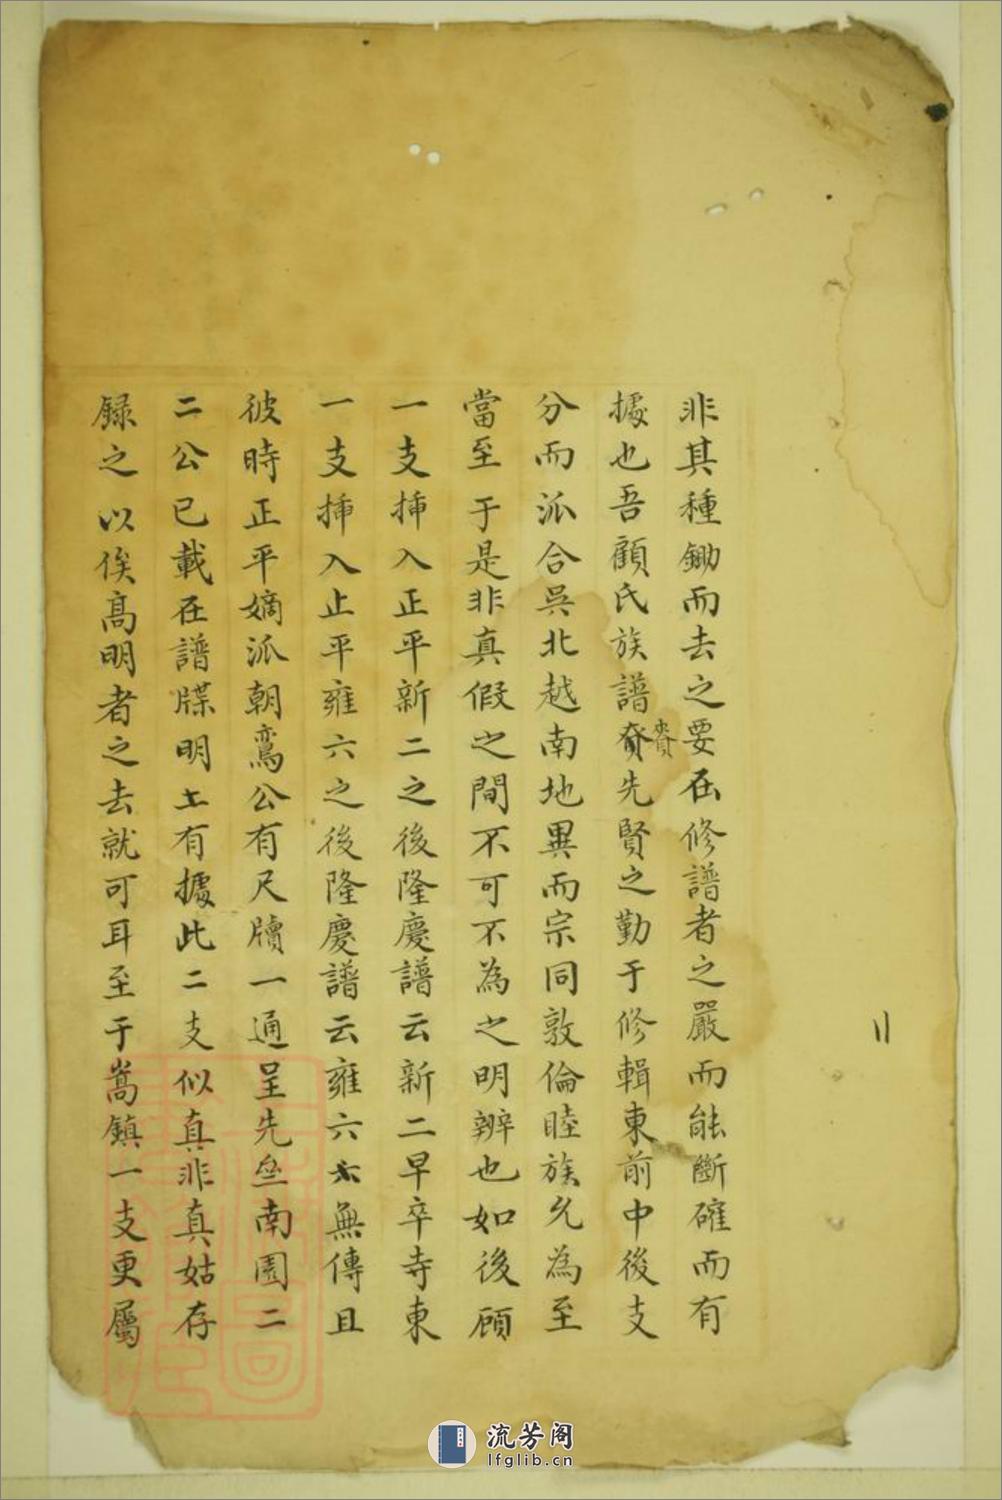 非其種鋤而去之要在修譜者之嚴而能斷確而有
據也吾顧氏族譜賚先賢之勤于修輯東前中後支
分而派合吳北越南地異而宗同敦倫睦族允為至
當至于是非真假之間不可不為之明辨也如後顧
一支揷入正平新二之後隆慶譜云新二早卒寺東
一支揷入止平雍六之後隆慶譜云雍六亦無傳且
彼時正平嫡派朝鸞公有尺牘一通呈先叅南園二
二公已載在譜牒明士有據此二支似真非真姑存
録之以俟髙明者之去就可耳至于嵩鎮一支更屬
流芳阁
lfglib.cn